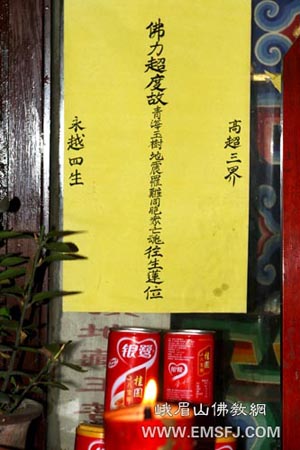 高超三界
佛力超度故青海玉樹地震罹難同胞眾亡魂往生蓮位
永越四生
银鹭
桂圆
桂圆
峨眉山佛教網
WWW.EMSFJ.COM